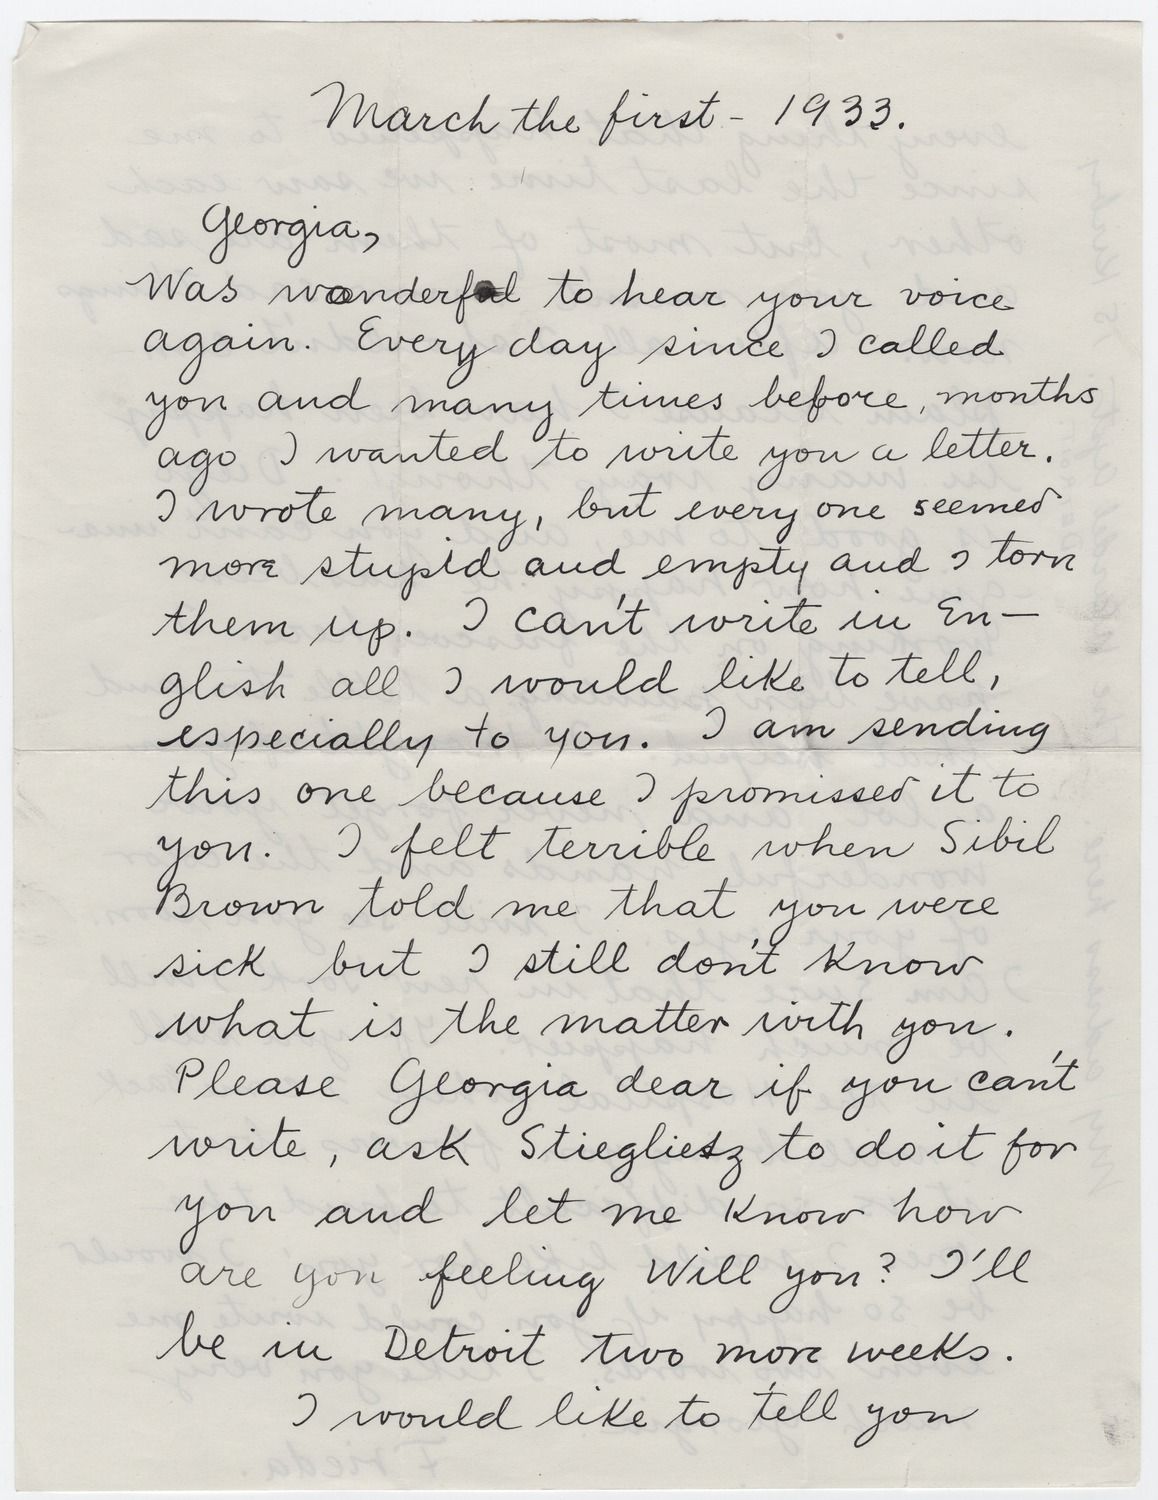 March the first - 1933.
Georgia,
Was wonderful to hear your voice
again. Every day since I called
you and many times before, months
ago I wanted to write you a letter.
I wrote many, but every one seemed
more stupid and empty and I torn
them up. I can't write in En-
glish all I would like to tell,
especially to you. I am sending
this one because I promissed it to
you. I felt terrible when Sibil
Brown told me that you were
sick but I still don't know
what is the matter with you.
Please Georgia dear if you can't
write, ask Stieglietz to do it for
you and let me know how
are you feeling Will you? I'll
be in Detroit two more weeks.
I would like to tell you